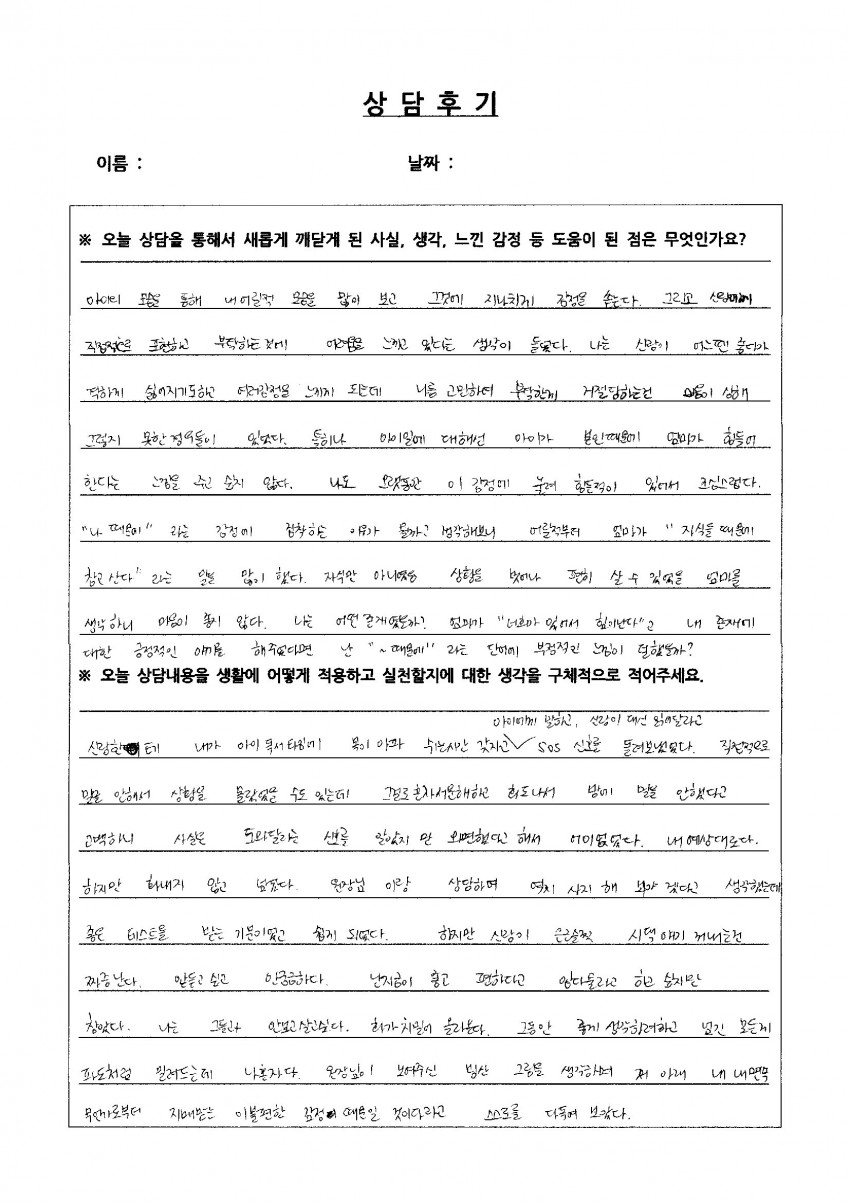 상 담 후 기
이름 : 날짜 :
※ 오늘 상담을 통해서 새롭게 깨닫게 된 사실, 생각, 느낀 감정 등 도움이 된 점은 무엇인가요?
아이의 모습을 통해 내 어릴적 모습을 많이 보고 그것에 지나치게 감정을 쏟는다. 그리고 신랑에게
직접적으로 표현하고 부탁하는 것에 어려움을 느끼고 있다는 생각이 들었다. 나는 신랑이 어느땐 좋다가
격하게 싫어지기도하고 여러감정을 느끼게 되는데 나름 고민하여 부탁한게 거절당하는건 마음이 상해
그렇지 못한 경우들이 있었다. 특히나 아이일에 대해선 아이가 본인때문에 엄마가 힘들어
한다는 느낌을 주고 싶지 않다. 나도 오랫동안 이 감정에 눌려 힘들적이 있어서 조심스럽다.
"나 때문에" 라는 감정에 집착하는 이유가 뭘까고 생각해보니 어릴적부터 엄마가 "자식들 때문에
참고 산다" 라는 말을 많이 했다. 자식만 아니었음 상황을 벗어나 편히 살 수 있었을 엄마를
생각하니 마음이 좋지 않다. 나는 어떤 존재였을까? 엄마가 "너희가 있어서 힘이난다"고 내 존재에
대한 긍정적인 얘기를 해주었다면 난 "~때문에" 라는 단어에 부정적인 느낌이 덜했을까?
※ 오늘 상담내용을 생활에 어떻게 적용하고 실천할지에 대한 생각을 구체적으로 적어주세요.
아이에게 말하고, 신랑이 대신 읽어달라고
신랑한테 내가 아이 독서타임에 목이 아파 쉬는시간 갖자고 SOS 신호를 돌려보냈었다. 직접적으로
말을 안해서 상황을 몰랐었을 수도 있는데 그걸로 혼자서운해하고 화도나서 밤에 말을 안했다고
고백하니 사실은 도와달라는 신호를 알았지만 외면했다고 해서 어이없었다. 내 예상대로다.
하지만 화내지 않고 넘겼다. 원장님이랑 상담하며 역시 시지 해 봐야겠다고 생각했는데
좋은 테스트를 받는 기분이었고 쉽게 되었다. 하지만 신랑이 은근슬쩍 시댁 얘기 꺼내는건
짜증난다. 안듣고 싶고 안궁금하다. 난지금이 좋고 편하다고 입다물라고 하고 싶지만
참았다. 나는 그들과 안보고살고싶다. 화가 치밀어 올라온다. 그동안 좋게 생각하려하고 넘긴 모든게
파도처럼 밀려드는데 나혼자다. 원장님이 보여주신 빙산 그림을 생각하며 저 아래 내 내면속
무언가로부터 지배받는 이불편한 감정 때문일 것이다라고 스스로를 다독여 보았다.